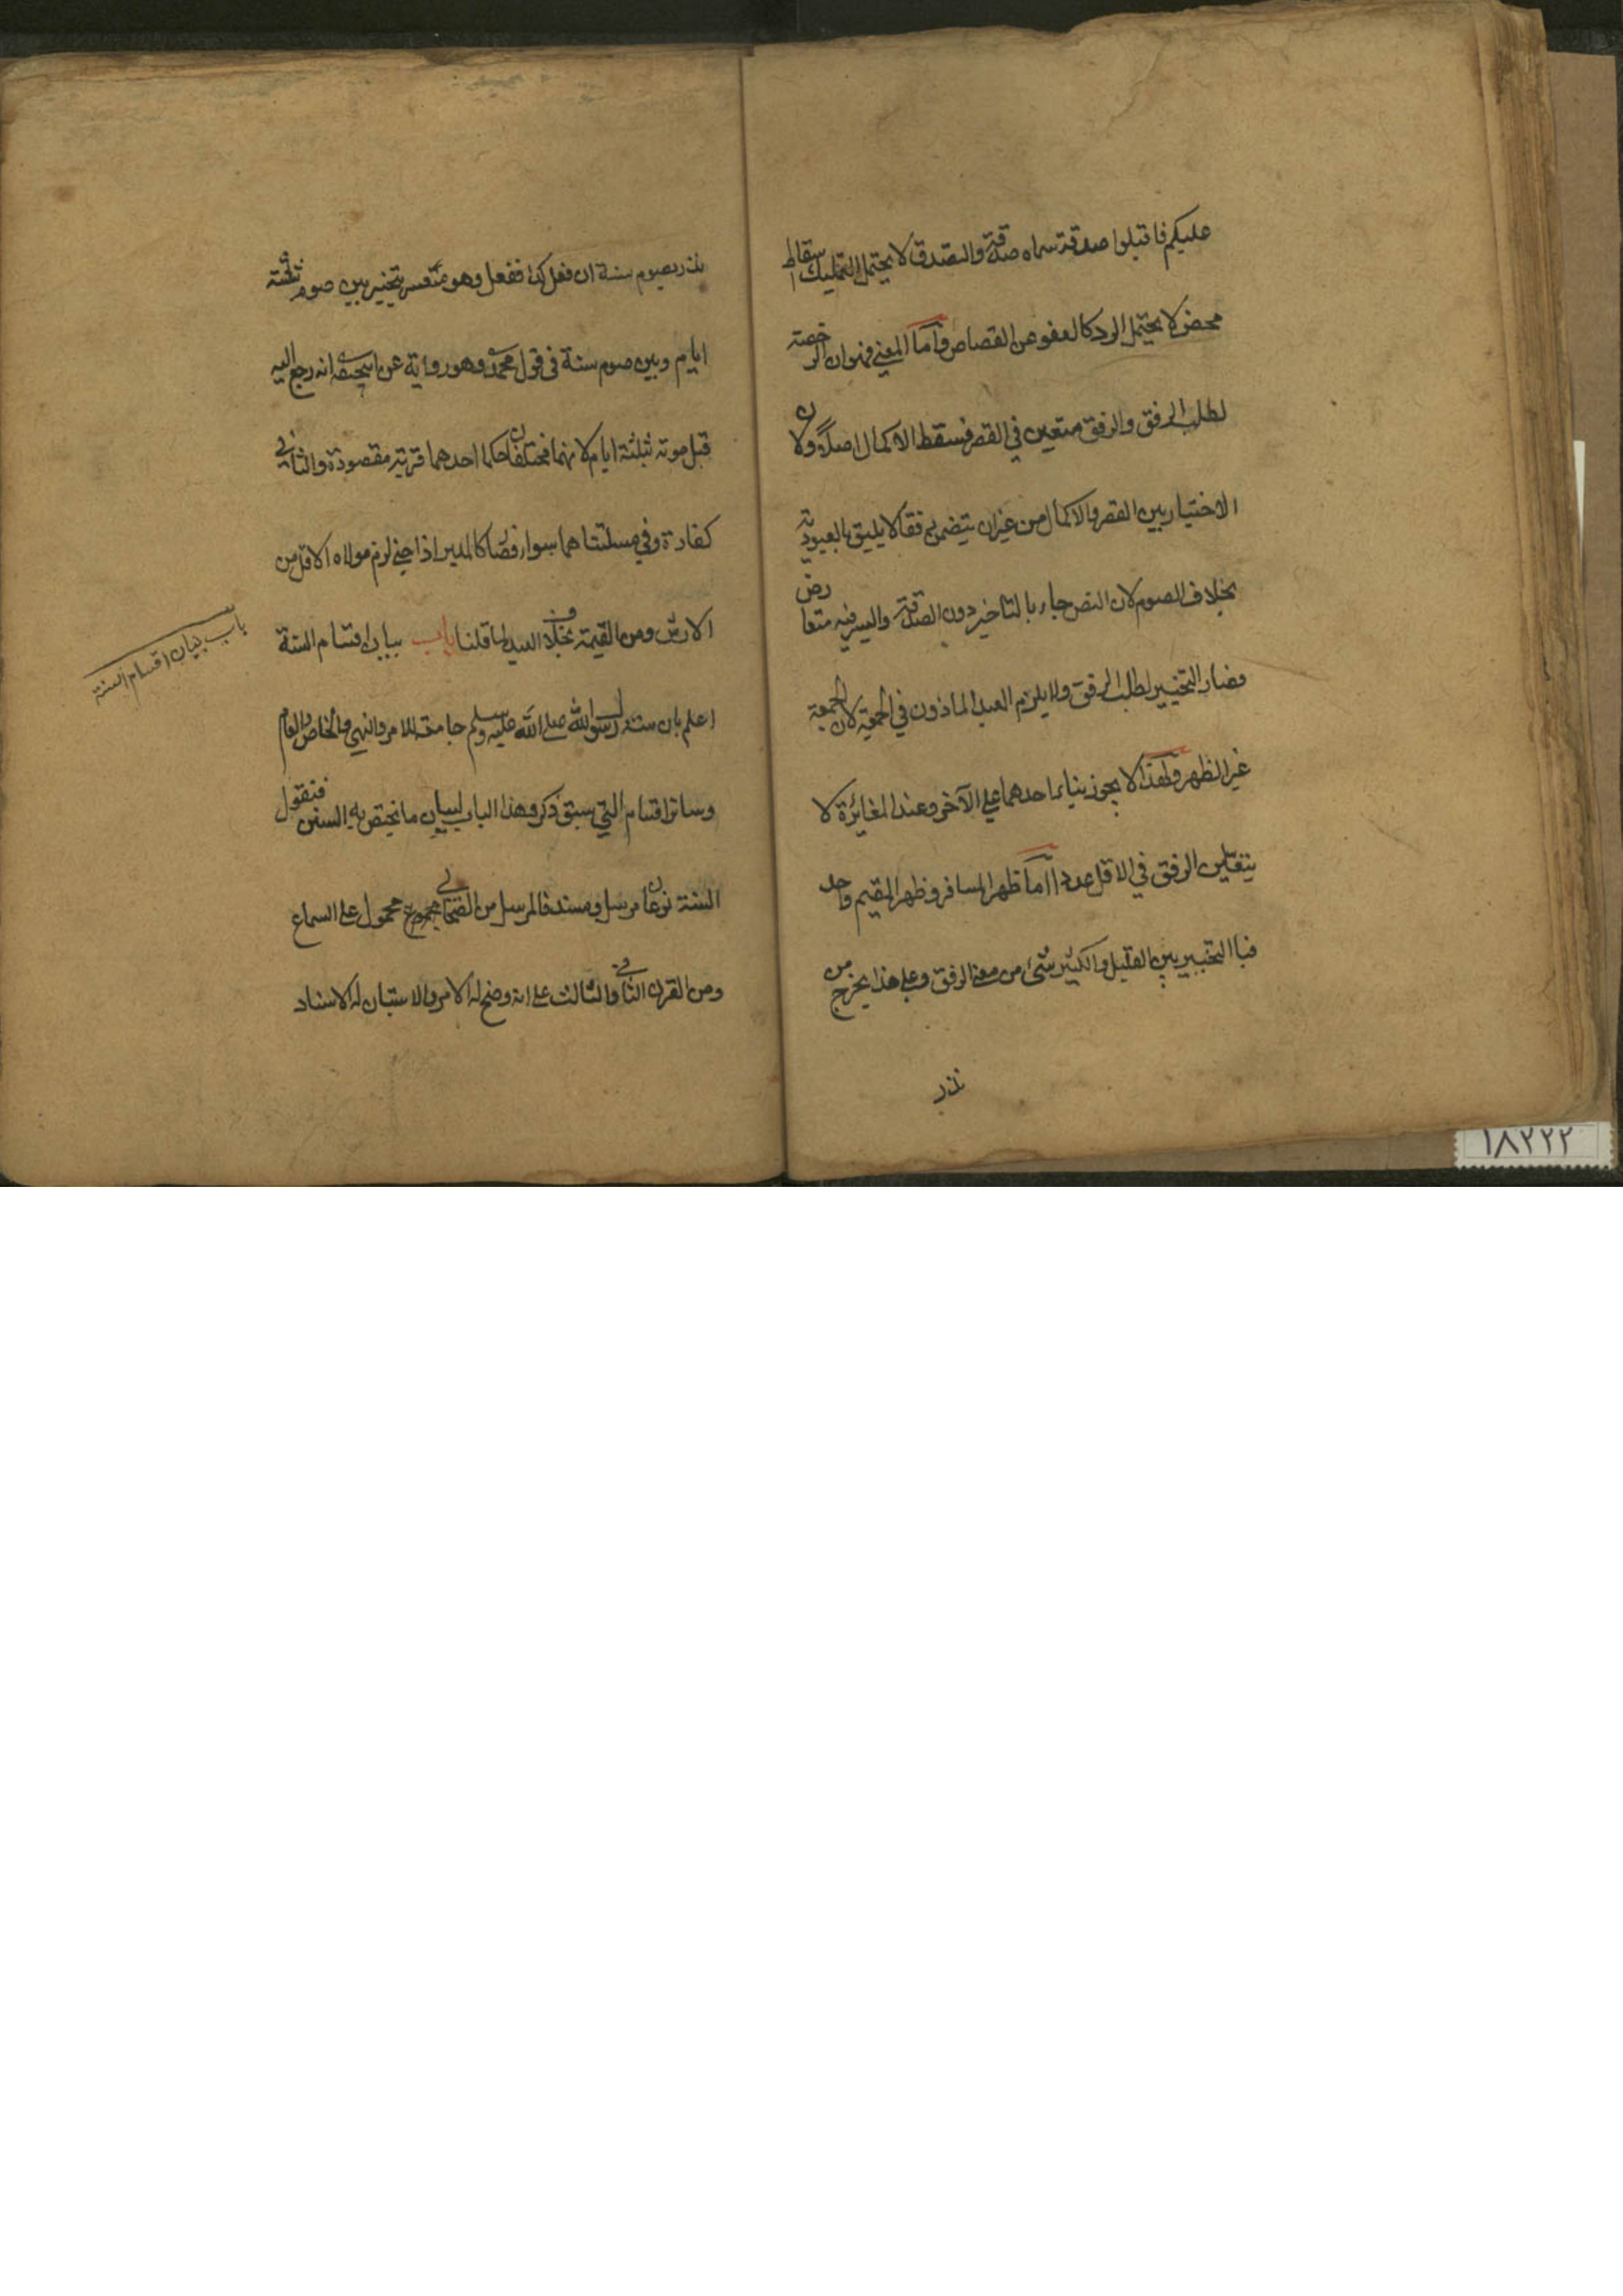 عليكم فاقبلوا صدقته سماه صدقة والتصدق لا يحتمل التمليك اسقاط
محض لا يحتمل الرد كالعفو عن القصاص واما المعنى فهو ان الرخصة
لطلب الرفق والرفق متعين في القصر فسقط الاكمال اصلا ولان
الاختيار بين القصر والاكمال من غير ان يتضمن رفقا لا يليق بالعبودية
بخلاف الصوم لان النص جاء بالتاخير دون الصدقة واليسر فيه متعارض
فصار التخيير لطلب الرفق ولا يلزم العبد الماذون في الجمعة لان الجمعة
غير الظهر ولهذا لا يجوز بناء احدهما على الآخر وعند المغائرة لا
يتعين الرفق في الاقل عددا اما ظهر المسافر وظهر المقيم واحد
فبا التخيير بين القليل والكثير شئ من معنى الرفق وعلى هذا يخرج من
نذر
نذر بصوم سنة ان فعل كذا ففعل وهو معسر يتخير بين صوم ثلثة
ايام وبين صوم سنة في قول محمد وهو رواية عن ابيحنيفة انه رجع اليه
قبل موته بثلثة ايام لانهما مختلفان حكما احدهما قربة مقصودة والثاني
كفارة وفي مسئلتنا هما سواء فصار كالمدبر اذا جنى لزم مولاه الاقل من
الارش ومن القيمة بخلاف العبد لما قلنا باب بيان اقسام السنة
باب بيان اقسام السنة
اعلم بان سنة رسول الله صلى الله عليه وسلم جامعة للامر والنهي والخاص والعام
وسائر اقسام التي سبق ذكر وهذا الباب لبيان ما يختص به السنن فنقول
السنة نوعان مرسل ومسند فالمرسل من الصحابي محمول على السماع
ومن القرن الثاني والثالث على انه وضح له الامر والاستبان له الاسناد
١٨٢٢٢